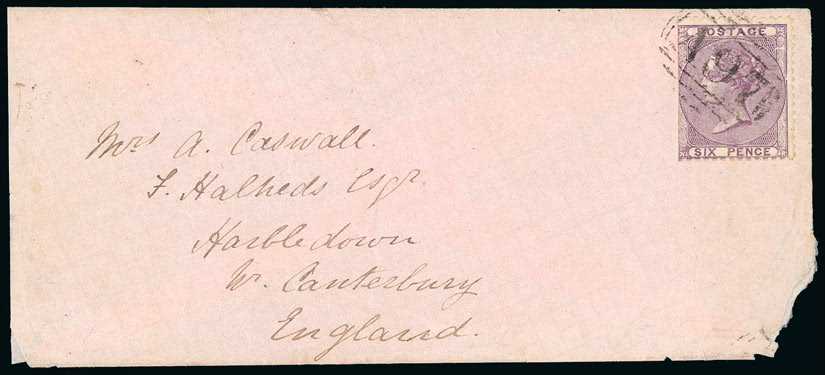 POSTAGE
197
SIX PENCE
Mrs A. Caswall.
F. Halheds Esqr.
Harbledown
Nr. Canterbury
England.